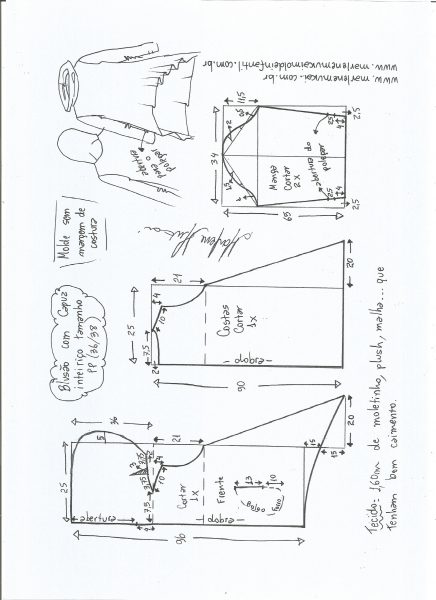 www.marlenemukai.com.br
www.marlenemukaimoldeinfantil.com.br
abertura
para o
polegar
Molde sem
margem de
costura
Blusão com Capuz
inteiriço tamanho
PP (36/38)
Marlene Mukai
11,5
34
2
Manga
Cortar
2x
abertura do
polegar
2,5
4
2,5
4
2,5
2,5
65
21
4
10
25
7,5
2
Costas
Cortar
1x
dobra
20
90
36
5
25
21
7,5
abertura
Cortar
1x
Frente
dobra
13
10
Bolso
15
15
20
96
Tecido: 1,60m de moletinho, plush, malha... que
Tenham bom caimento.